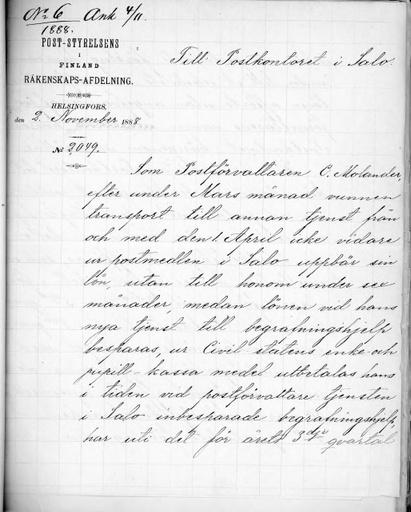 No 6 Ank 4/11
1888.
POST-STYRELSENS
I
FINLAND
RÄKENSKAPS-AFDELNING.
HELSINGFORS,
den 2. November 1888.
No 2049.
Till Postkontoret i Salo.
Som Postförvaltaren C. Molander,
efter under Mars månad vunnen
transport till annan tjenst från
och med den 1 April icke vidare
ur postmedlen i Salo uppbär sin
lön, utan till honom under sex
månader medan lönen vid hans
nya tjenst till begrafningshjelp
besparas, ur Civil statens enke och
pupill-kassa medel utbetalas hans
i tiden vid postförvaltare tjensten
i Salo inbesparade begrafningshjelp,
har uti det för årets 3dje qvartal